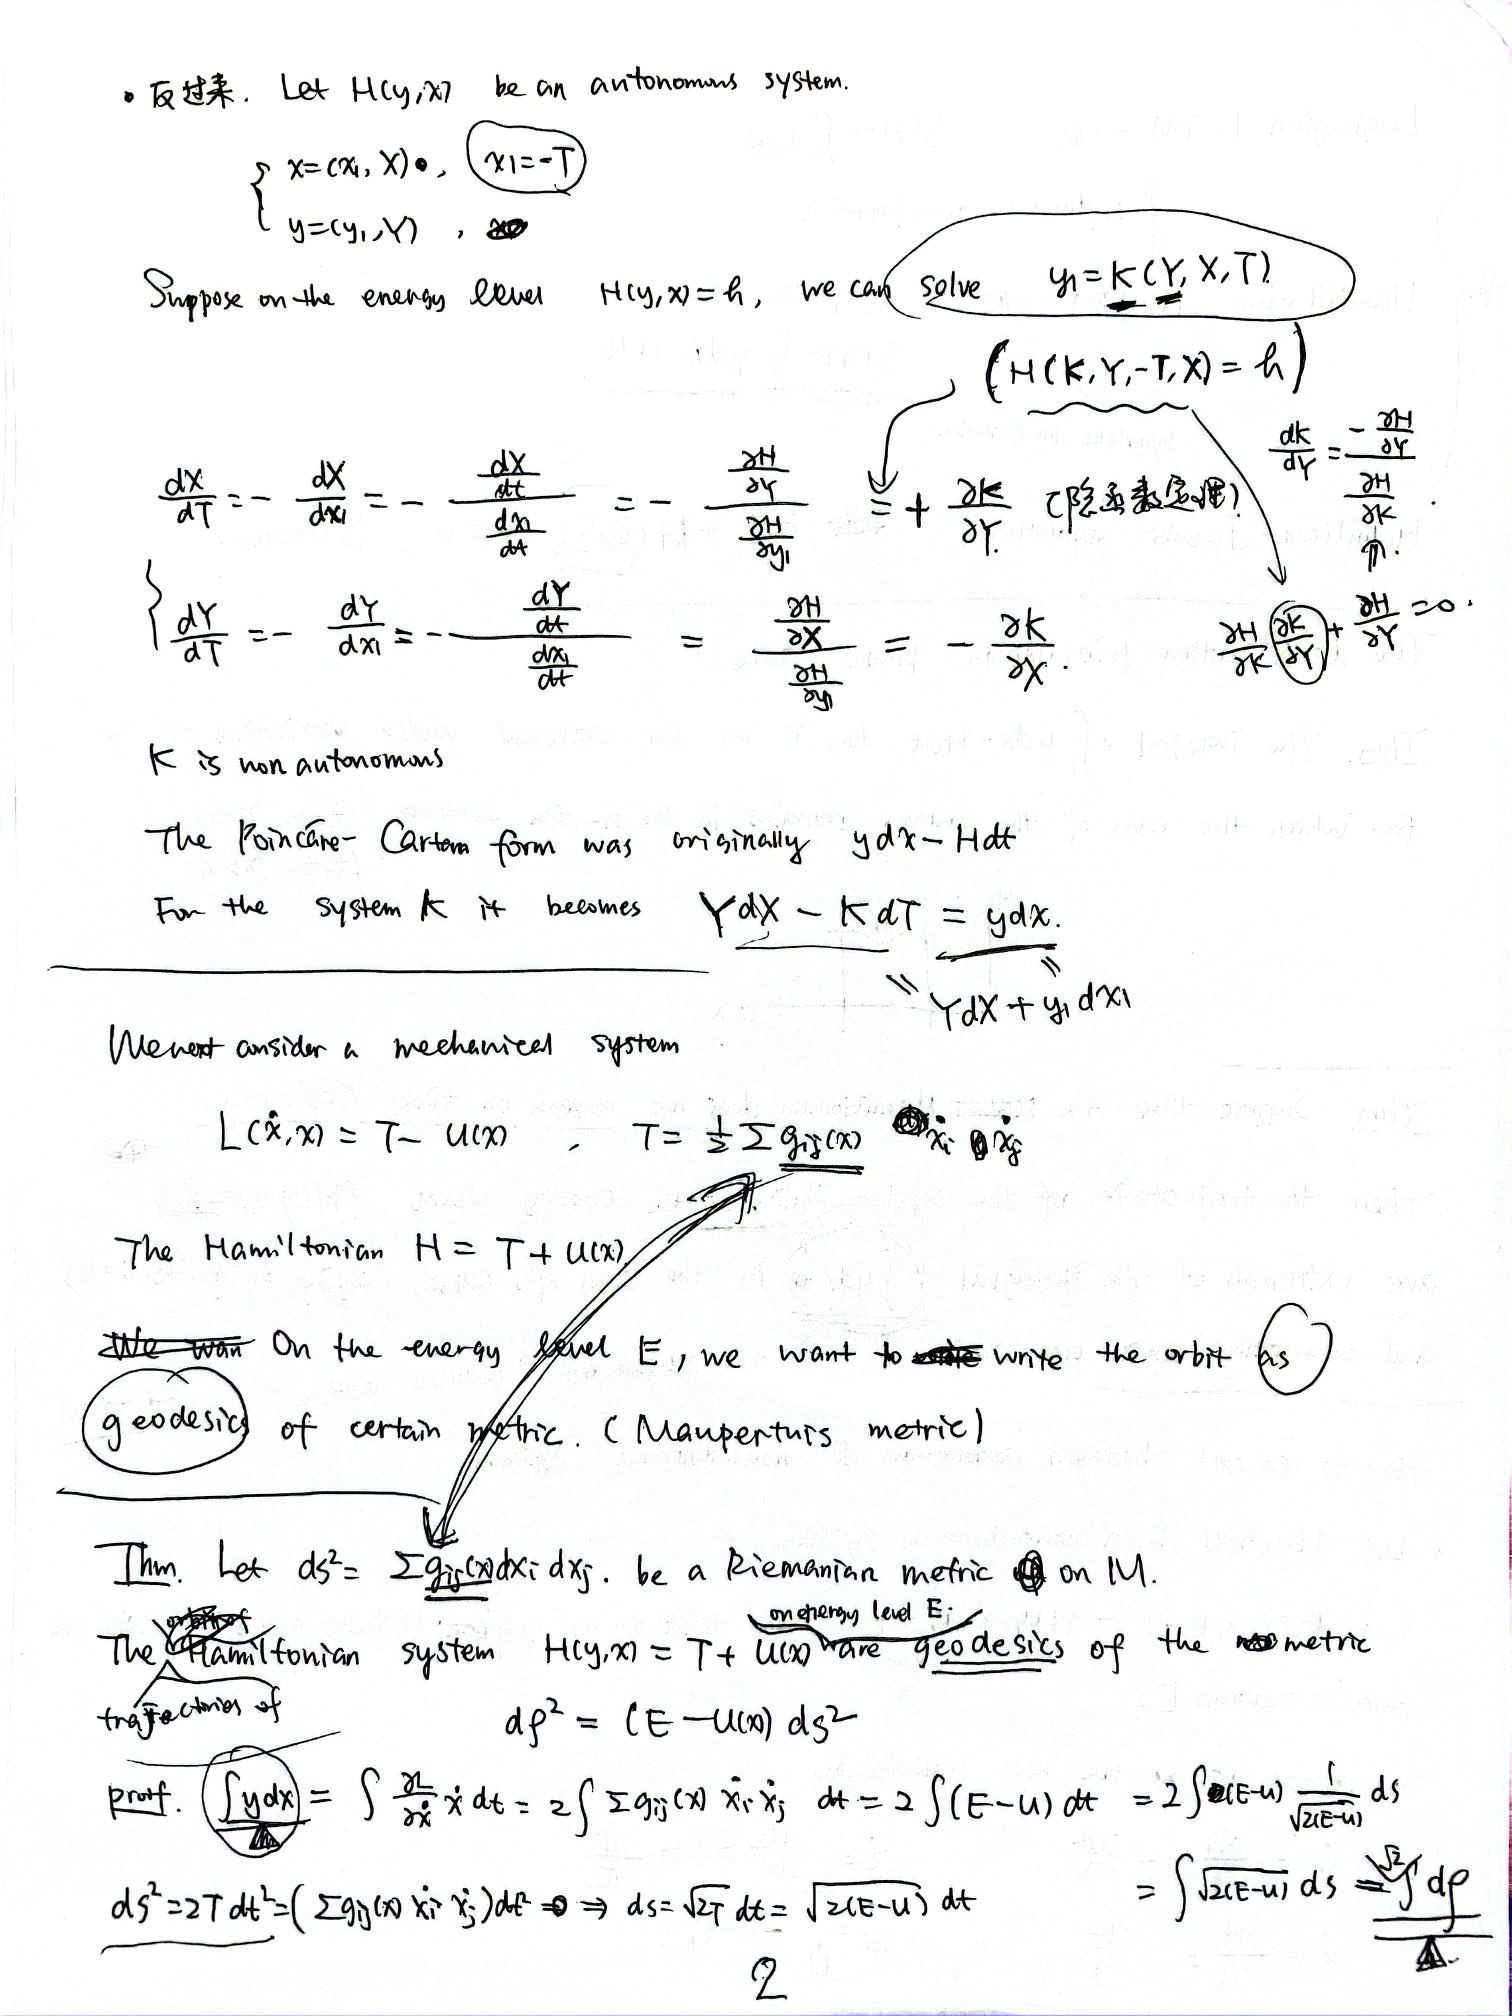 • 反过来. Let H(y,x) be an autonomous system.
{ x=(x₁, X), x₁=-T
y=(y₁,Y),
Suppose on the energy level H(y,x)=h, we can solve y₁=K(Y,X,T).
(H(K,Y,-T,X)=h)
dX/dT = - dX/dx₁ = - (dX/dt)/(dx₁/dt) = - (∂H/∂Y)/(∂H/∂y₁) = + ∂K/∂Y. (隐函数定理)
dK/dY = (-∂H/∂Y)/(∂H/∂K).
⇑.
{ dY/dT = - dY/dx₁ = - (dY/dt)/(dx₁/dt) = (∂H/∂X)/(∂H/∂y₁) = - ∂K/∂X.
∂H/∂K ∂K/∂Y + ∂H/∂Y = 0.
K is nonautonomous
The Poincáre-Cartan form was originally ydx-Hdt
For the system K it becomes YdX - KdT = ydx.
" YdX + y₁dx₁
We next consider a mechanical system
L(ẋ,x) = T- U(x), T= ½ Σ gij(x) ẋi ẋj
The Hamiltonian H = T+U(x).
We wan On the energy level E, we want to write the orbit as
geodesics of certain metric. (Maupertuis metric)
Thm. Let ds²= Σgij(x)dxi dxj. be a Riemanian metric on M.
orbit of
on energy level E.
The Hamiltonian system H(y,x) = T+ U(x) are geodesics of the metric
trajectories of
dρ² = (E-U(x)) ds²
proof. ∫ydx = ∫ ∂L/∂ẋ ẋ dt = 2∫ Σgij(x) ẋi ẋj dt = 2∫(E-U) dt = 2∫(E-U) 1/√2(E-U) ds
ds²=2Tdt²=(Σgij(x) ẋi ẋj)dt² ⇒ ds=√2T dt = √2(E-U) dt
= ∫√2(E-U) ds = √2∫dρ
2